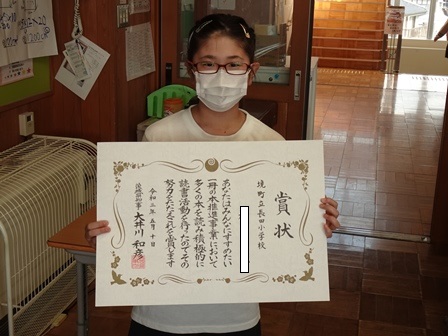 賞状
境町立長田小学校
あなたはみんなにすすめたい
一冊の本推進事業において
多くの本を読み積極的に
読書活動を行ったのでその
努力をたたえこれを賞します
令和三年五月十日
茨城県知事 大井川 和彦